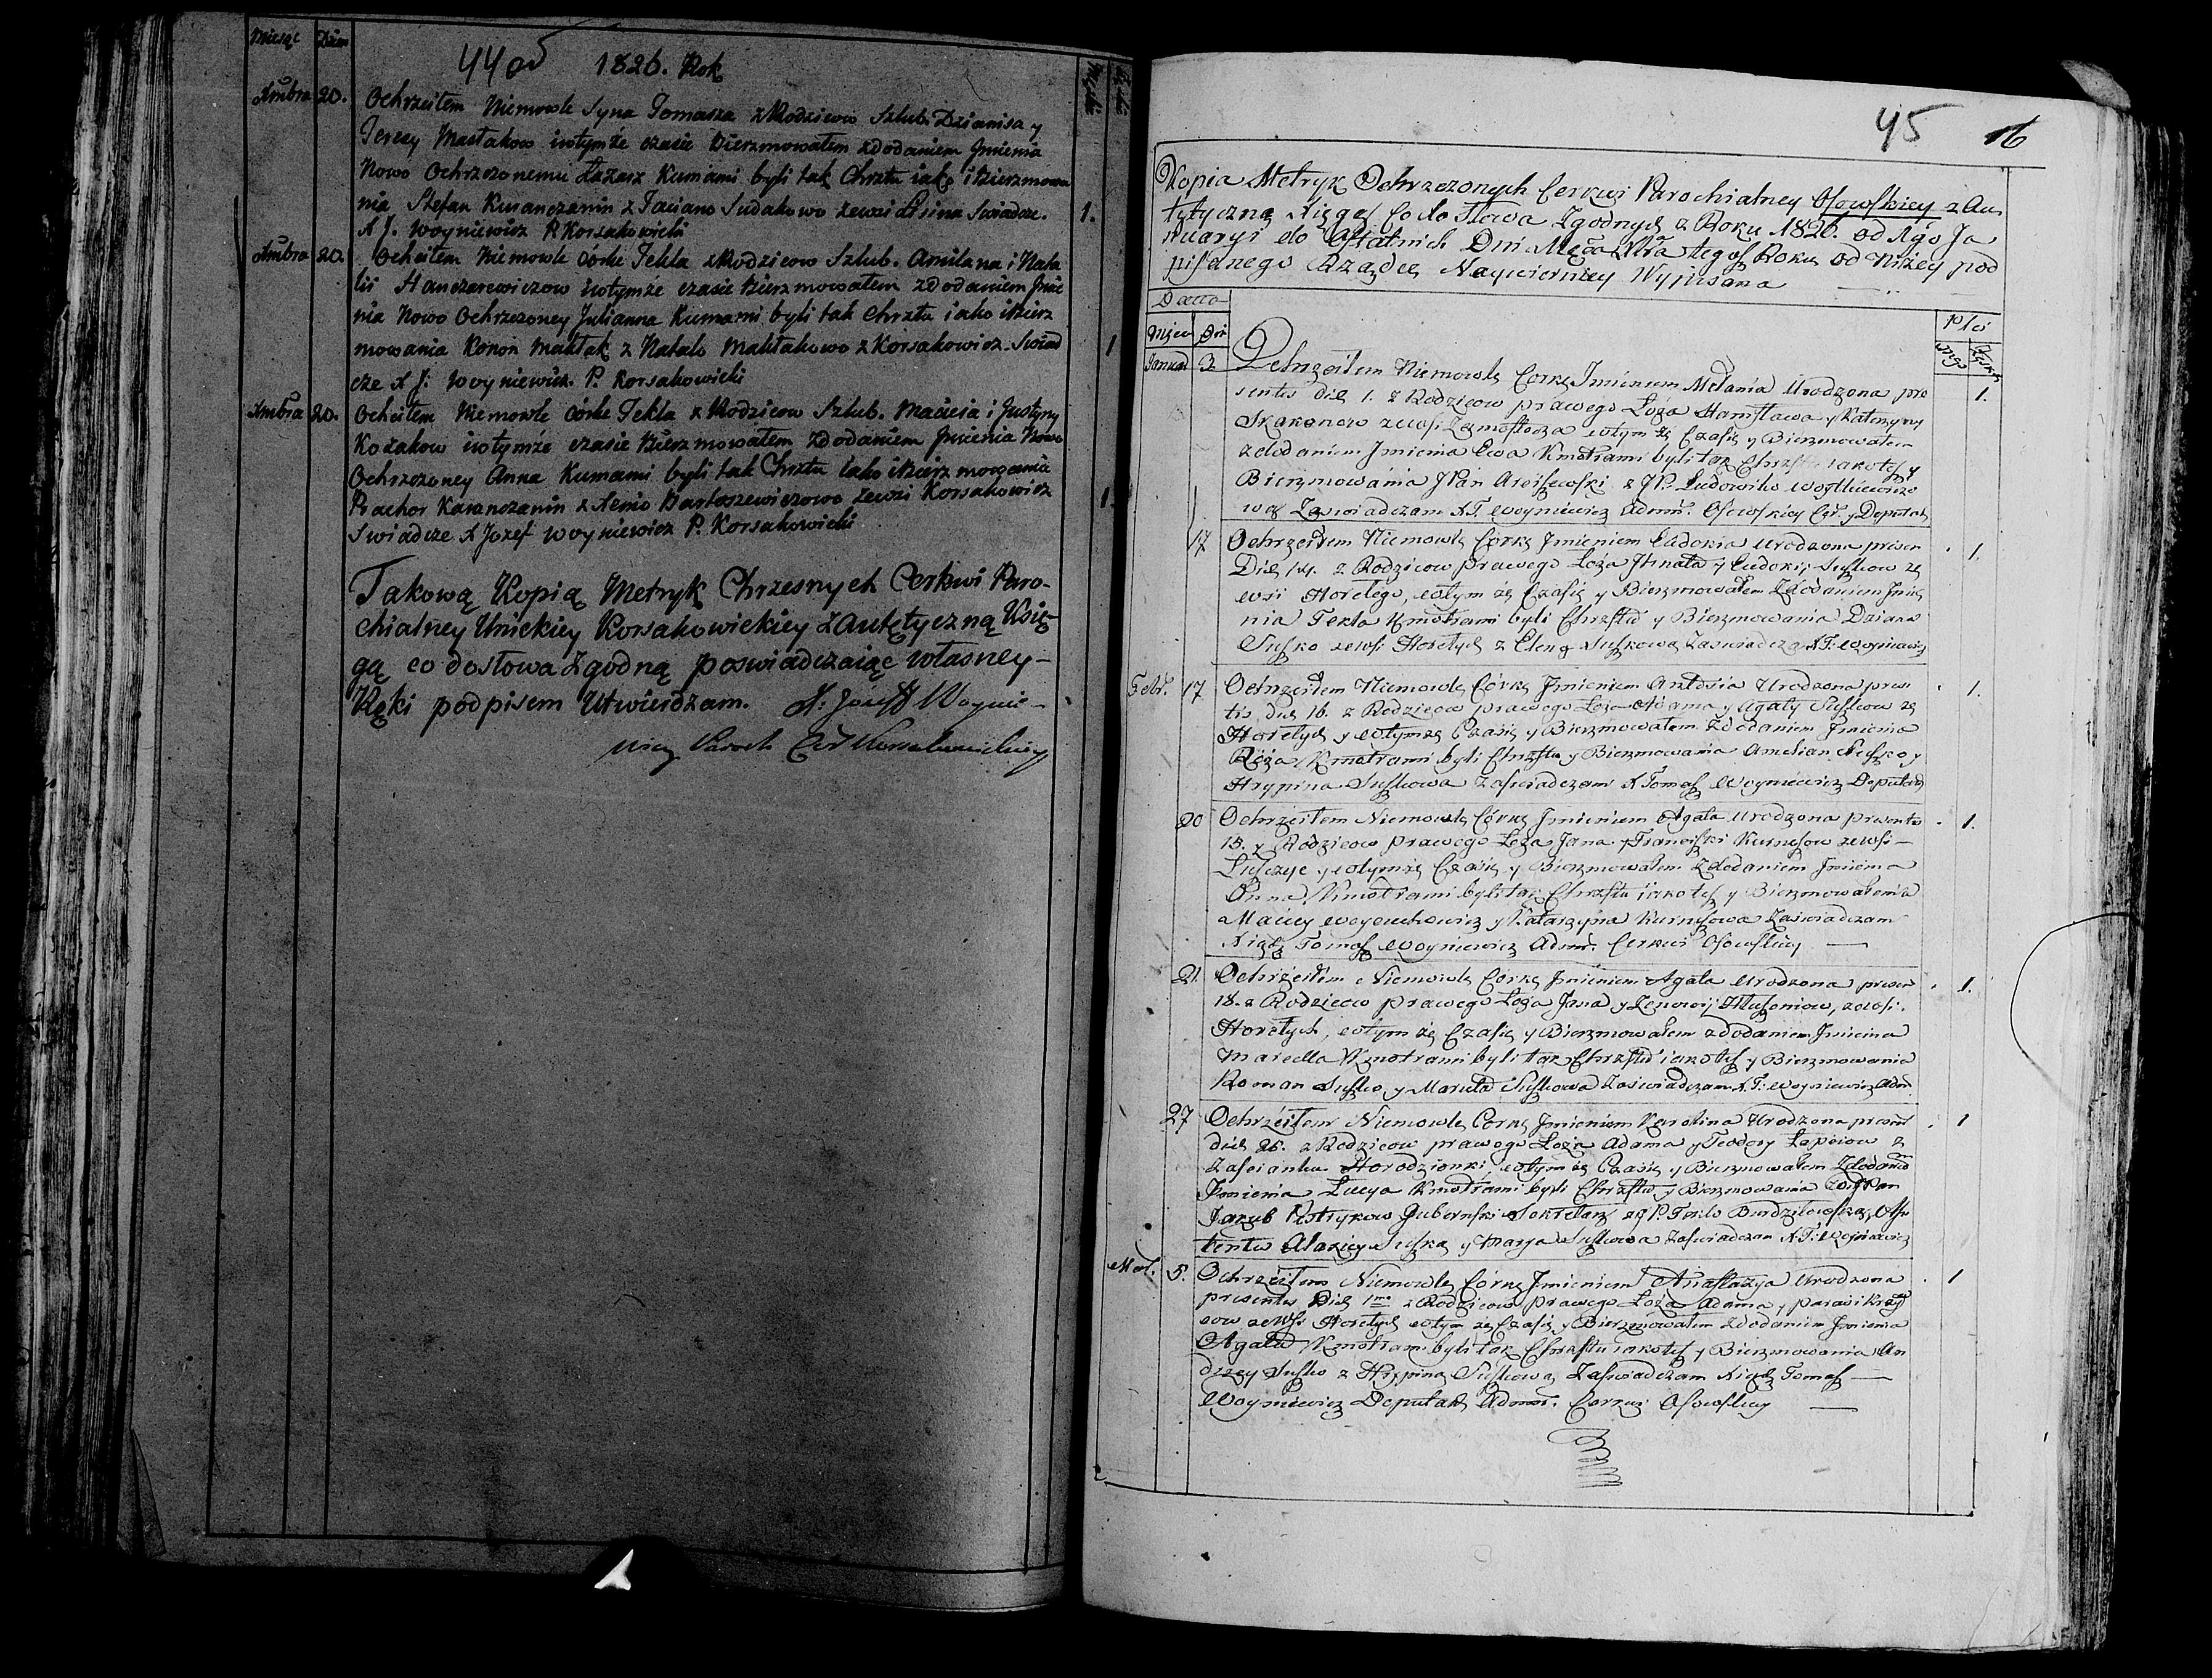 Miesąc Dzien
44 od 1826. Rok
Xmbra 20. Ochrzcitem Niemowle Syna Tomasza z Rodzicow Szlub. Dzianisa y
Teresy Mastakow wtymże czasie Bierzmowatem zdodaniem Jmienia
Nowo Ochrzczonemu Łazarz Kumami byli tak Chrztu iako i Bierzmowa
nia Stefan Kuranczanin z Taciano Sudakowo zewsi Swiadcze. 1.
X J. Woyniewicz P. Korsakowicki
Xmbra 20. Ochcitem Niemowle córke Tekla z Rodzicow Szlub. Amilana i Nata
lii Hanczarewiczow wtymże czasie Bierzmowatem zdodaniem Jmie
nia Nowo Ochrzczoney Julianna Kumami byli tak Chrztu iako i Bierz
mowania Konon Maktak z Natalo Maktakowo z Korsakowicz. Swiad 1
cze X J: Woyniewicz. P. Korsakowicki
Xmbra 20. Ochcitem Niemowle córke Tekla z Rodzicow Szlub. Macieia i Justyny
Kozakow wtymże czasie Bierzmowatem zdodaniem Jmienia Nowo
Ochrzczoney Anna Kumami byli tak Chrztu iako i Bierzmowania
Prachor Karanczanin z Xenio Bartoszewiczowo zewsi Korsakowicz 1.
Swiadcze X Jozef Woyniewicz P. Korsakowicki
Takową Kopią Metryk Chrzesnych Cerkwi Paro-
chialney Unickiey Korsakowickiey z autętyczną Księ-
gą co dostowa zgodną poswiadczaiąc własney-
Ręki podpisem Utwierdzam. X. Józeff Woynie-
wicz Paroch Cer Korsakowickiey
45 16
Kopia Metryk Ochrzczonych Cerkwi Parochialney Osowskiey z Au
tętyczną Xięgą Co do Słowa Zgodnych z Roku 1826. od 1go Ja
nuaryi do Ostatnich Dni Męca Xbra tegosz Roku od niżey pod
pisanego Rządcę Naywierniey Wypisana
Datta
Mięca Dni Płci
Januar 3 Ochrzciłem Niemowlę Corkę Jmieniem Melania Urodzona pre
sentis diē 1. z Rodzicow prawego Łoża Stanisława y Katerzyny 1.
zewsi wtym że Czasie y Bierzmowałem
zdodaniem Jmienia Ewa Kmotrami byli tak Chrzstu iakotesz y
Bierzmowania JPan z JP. Ludowiko Woytkiewiczo
wą Zaswiadczam X T. Woyniewicz Admr. Osowskiey Cer. y Deputat
17 Ochrzciłem Niemowlę Córkę Jmieniem Eudokia Urodzona presen 1.
Diē 14. z Rodzicow prawego Łoża Jhnata y Eudokij Suszkow ze
wsii Horelego, wtym że Czasie y Bierzmowałem Zdodaniem Jmie
nia Tekla Kmotrami byli Chrzstu y Bierzmowania Dziana
Suszko zewsi Horelych z Eleną Suszkową Zaswiadcza X T: Woyniewicz
Febr. 17 Ochrzciłem Niemowlę Córkę Jmieniem Antosia Urodzona presen 1.
tis diē 16. z Rodzicow prawego Łoża Adama y Agaty Suszkow ze
Horelych y wtymże Czasie y Bierzmowałem Zdodaniem Jmienia
Róża Kmotrami byli Chrzstu y Bierzmowania Amelian Suszko y
Hrypina Suszkowa Zaswiadczam X Tomasz Woyniewicz Deputat
20 Ochrzciłem Niemowlę Córkę Jmieniem Agata Urodzona presentis 1.
15. z Rodzicow prawego Łoża Jana y Franciszki Kurneszow zewsi
y wtymże Czasie y Bierzmowałem Zdodaniem Jmienia
Anna Kmotrami byli tak Chrzstu iakotesz y Bierzmowałenia
Maciey Woyciechowicz y Katarzyna Kurneszowa Zaswiadczam
Xiądz Tomasz Woyniewicz Admr. Cerkwi Osowskiey
21. Ochrzciłem Niemowlę Corkę Jmieniem Agata Urodzona presen 1.
18. z Rodzicow prawego Łoża Jana y Zenowij zewsi.
Horelych, wtym że Czasie y Bierzmowałem zdodaniem Jmienia
Marcella Kmotrami byli tak Chrzstu iakotesz y Bierzmowania
Roman Suszko y Maruta Suszkowa Zaswiadczam X. T: Woyniewicz Adm
27 Ochrzciłem Niemowlę Corkę Jmieniem Karolina Urodzona present 1
diē 25. z Rodzicow prawego Łoża Adama y Teodory Łapciow z
Zascianku Horodzionki, wtym że Czasie y Bierzmowałem Zdodaniē
Jmienia Łucya Kmotrami byli Chrzstu y Bierzmowania
Jakub Gubernski Sekretarz z JP. Teklo
tentu Suszko y Marya Suszkowa Zaswiadczam X T: Woyniewicz
Mar. 5. Ochrzciłem Niemowlę Córkę Jmieniem Anastazya Urodzona 1
presentis Diē 1ma z Rodzicow prawego Łoża Adama y
cow zewsi Horelych wtym że Czasie y Bierzmowałem Zdodaniem Jmienia
Agata Kmotrami byli tak Chrzstu iakotesz y Bierzmowania An
drzey Suszko z Hrypiną Suszkową Zaswiadczam Xiądz Tomasz
Woyniewicz Deputat Admr. Cerkwi Osowskiey